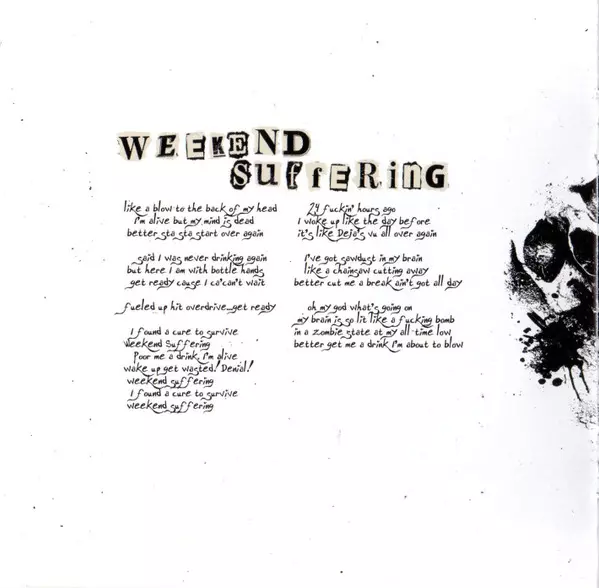 WEEKEND
SUFFERING
like a blow to the back of my head
I'm alive but my mind is dead
better sta sta start over again
said I was never drinking again
but here I am with bottle hands
get ready cause I ca'can't wait
fueled up hit overdrive...get ready
I found a cure to survive
Weekend Suffering
Poor me a drink, I'm alive
wake up get wasted! Denial!
weekend suffering
I found a cure to survive
weekend suffering
24 fuckin' hours ago
I woke up like the day before
it's like Deja's vu all over again
I've got sawdust in my brain
like a chainsaw cutting away
better cut me a break ain't got all day
oh my god what's going on
my brain is so lit like a fucking bomb
in a zombie state at my all time low
better get me a drink I'm about to blow